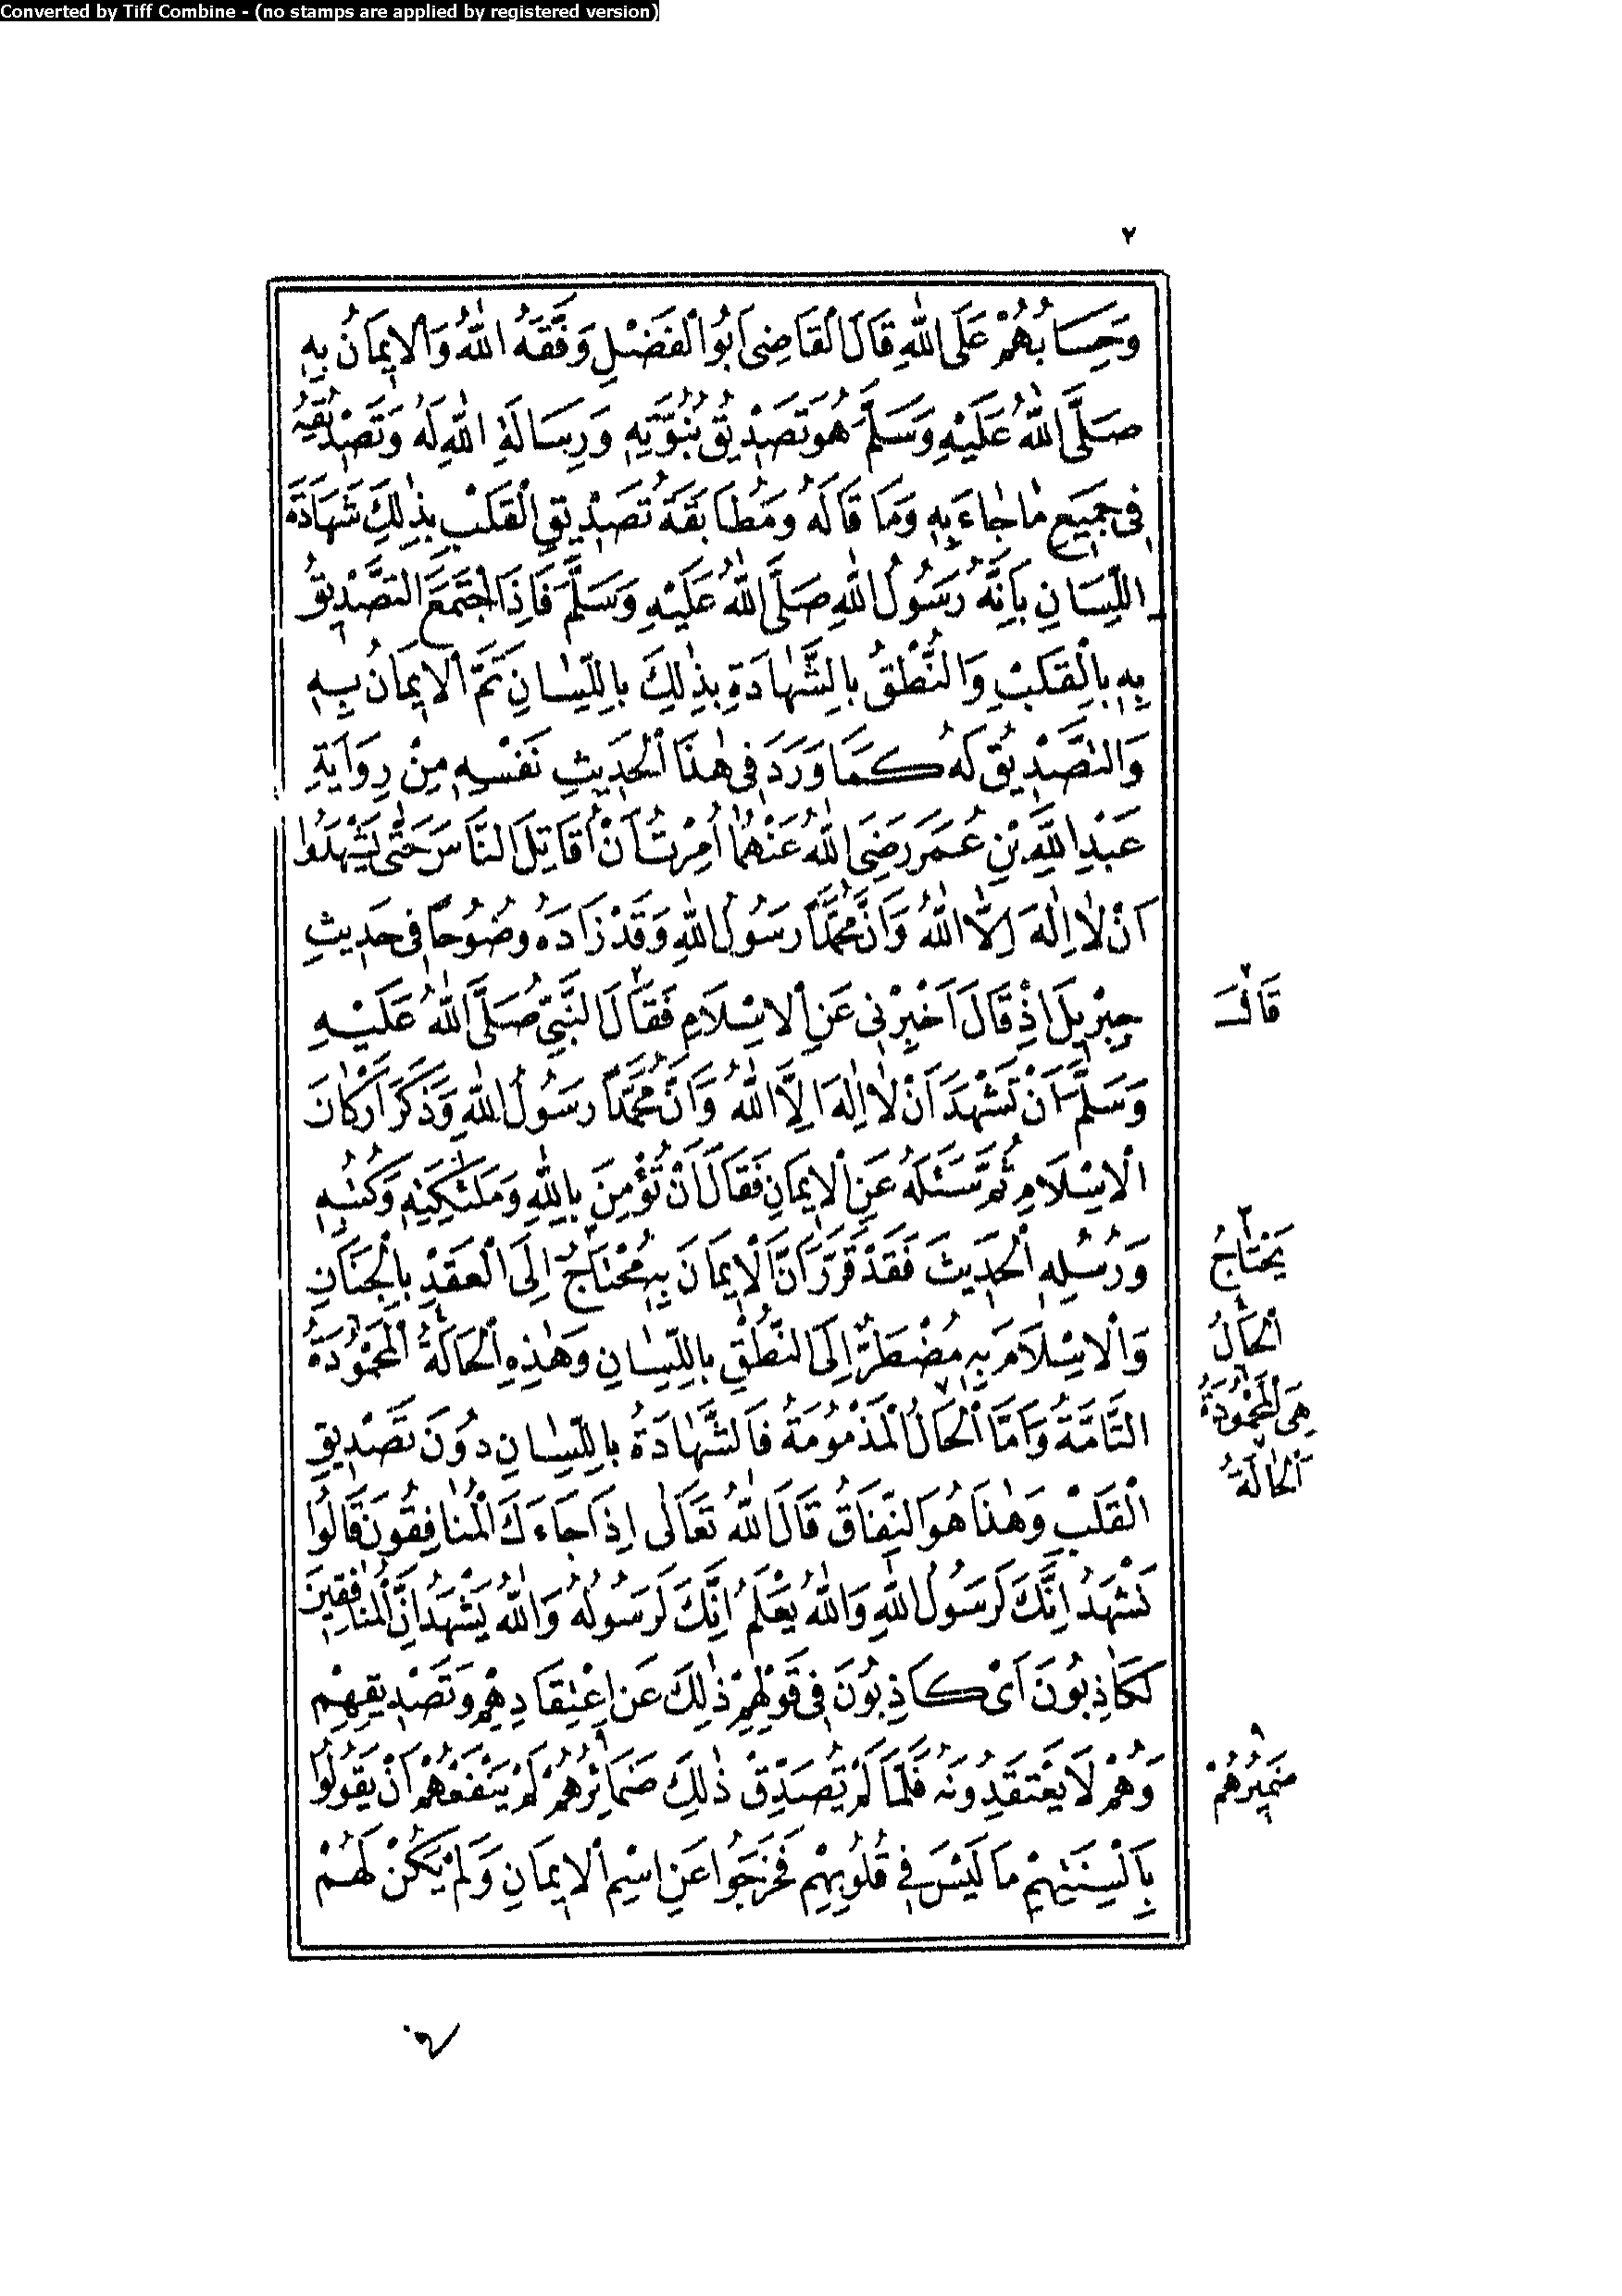 Converted by Tiff Combine - (no stamps are applied by registered version)
٢
وَحِسَابُهُمْ عَلَى اللهِ قَالَ الْقَاضِى اَبُو الْفَضْلِ وَفَّقَهُ اللهُ وَالْاِيمَانُ بِهِ
صَلَّى اللهُ عَلَيْهِ وَسَلَّمَ هُوَ تَصْدِيقُ نُبُوَّتِهِ وَرِسَالَةِ اللهِ لَهُ وَتَصْدِيقُهُ
فِى جَمِيعِ مَا جَاءَ بِهِ وَمَا قَالَهُ وَمُطَابَقَةُ تَصْدِيقِ الْقَلْبِ بِذٰلِكَ شَهَادَةَ
اللِّسَانِ بِاَنَّهُ رَسُولُ اللهِ صَلَّى اللهُ عَلَيْهِ وَسَلَّمَ فَاِذَا اجْتَمَعَ التَّصْدِيقُ
بِهِ بِالْقَلْبِ وَالنُّطْقُ بِالشَّهَادَةِ بِذٰلِكَ بِاللِّسَانِ تَمَّ الْاِيمَانُ بِهِ
وَالتَّصْدِيقُ لَهُ كَمَا وَرَدَ فِى هٰذَا الْحَدِيثِ نَفْسِهِ مِنْ رِوَايَةِ
عَبْدِ اللهِ بْنِ عُمَرَ رَضِىَ اللهُ عَنْهُمَا اُمِرْتُ اَنْ اُقَاتِلَ النَّاسَ حَتّٰى يَشْهَدُوا
اَنْ لَا اِلٰهَ اِلَّا اللهُ وَاَنَّ مُحَمَّدًا رَسُولُ اللهِ وَقَدْ زَادَهُ وُضُوحًا فِى حَدِيثِ
جِبْرِيلَ اِذْ قَالَ اَخْبِرْنِى عَنِ الْاِسْلَامِ فَقَالَ النَّبِىُّ صَلَّى اللهُ عَلَيْهِ
قَالَ
وَسَلَّمَ اَنْ تَشْهَدَ اَنْ لَا اِلٰهَ اِلَّا اللهُ وَاَنَّ مُحَمَّدًا رَسُولُ اللهِ وَذَكَرَ اَرْكَانَ
الْاِسْلَامِ ثُمَّ سَئَلَهُ عَنِ الْاِيمَانِ فَقَالَ اَنْ تُؤْمِنَ بِاللهِ وَمَلٰئِكَتِهِ وَكُتُبِهِ
وَرُسُلِهِ الْحَدِيثَ فَقَدْ قَرَّرَ اَنَّ الْاِيمَانَ بِهِ مُحْتَاجٌ اِلَى الْعَقْدِ بِالْجَنَانِ
يَحْتَاجُ
وَالْاِسْلَامَ بِهِ مُضْطَرٌّ اِلَى النُّطْقِ بِاللِّسَانِ وَهٰذِهِ الْحَالَةُ الْمَحْمُودَةُ
الْحَالُ
هِىَ الْمَحْمُودَةُ
التَّامَّةُ وَاَمَّا الْحَالُ الْمَذْمُومَةُ فَالشَّهَادَةُ بِاللِّسَانِ دُونَ تَصْدِيقِ
الْحَالَةُ
الْقَلْبِ وَهٰذَا هُوَ النِّفَاقُ قَالَ اللهُ تَعَالٰى اِذَا جَاءَكَ الْمُنَافِقُونَ قَالُوا
نَشْهَدُ اِنَّكَ لَرَسُولُ اللهِ وَاللهُ يَعْلَمُ اِنَّكَ لَرَسُولُهُ وَاللهُ يَشْهَدُ اِنَّ الْمُنَافِقِينَ
لَكَاذِبُونَ اَىْ كَاذِبُونَ فِى قَوْلِهِمْ ذٰلِكَ عَنِ اعْتِقَادِهِمْ وَتَصْدِيقِهِمْ
وَهُمْ لَا يَعْتَقِدُونَهُ فَلَمَّا لَمْ تُصَدِّقْ ذٰلِكَ ضَمَائِرُهُمْ لَمْ يَنْفَعْهُمْ اَنْ يَقُولُوا
ضَمِيرُهُمْ
بِاَلْسِنَتِهِمْ مَا لَيْسَ فِى قُلُوبِهِمْ فَخَرَجُوا عَنِ اسْمِ الْاِيمَانِ وَلَمْ يَكُنْ لَهُمْ